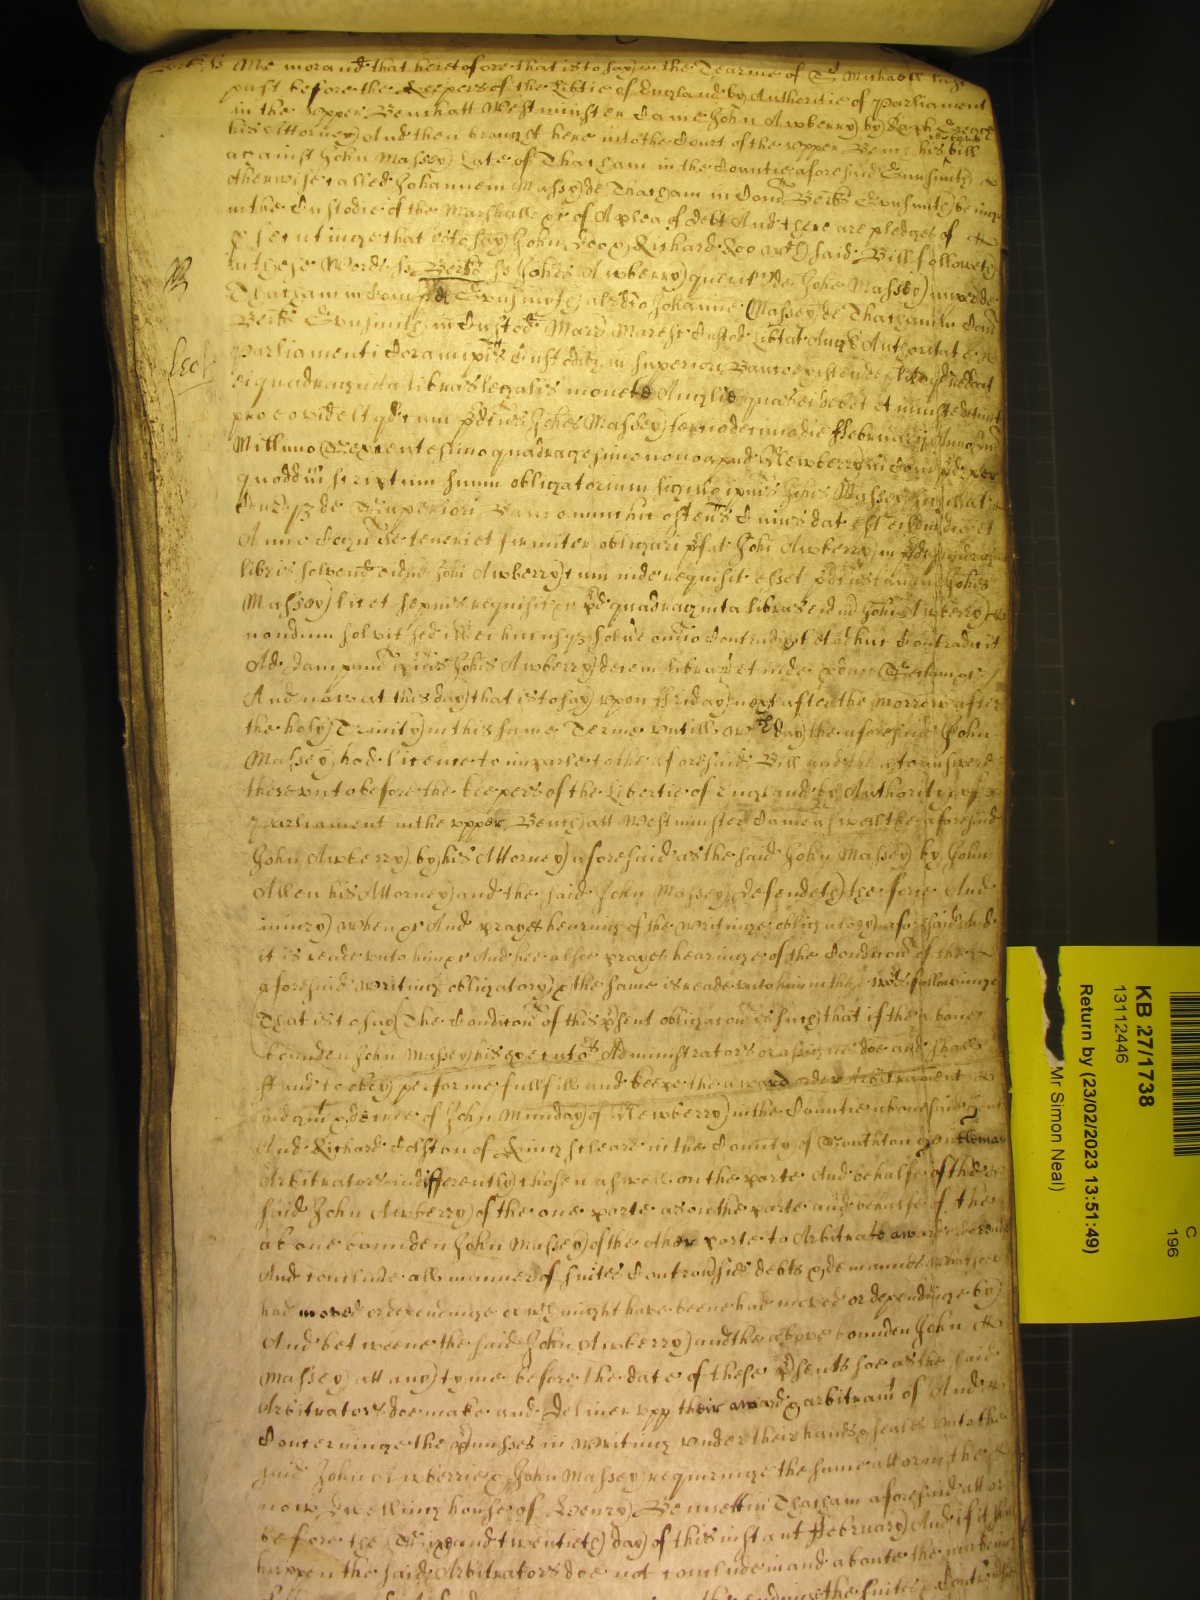 Berks ss Memorand that heretofore that is to say in the Tearme of St Michaell last
past before the Keepers of the Libtie of England by Authoritie of Parliament
in the Upper Bench att Westminster Came John Awberry by
his Attorney And then brought here into the Court of the upper Bench his bill
against John Massey Late of Thatcham in the Countie aforesaid
otherwise called Johannem Massey de Thatcham in Com Berks being
in the Custodie of the Marshall &c of A plea of debt And there are pledges of
psecutinge that is to say John Doo & Richard Roo wch said Bill followeth
in these Words ss Berks ss Johes Awberry querit de Johe Massey nup de
Thatcham in Com als dco Johanne Massey de Thatcham in Com
Berks in Custod Marr Maresc Custod Libtat Angl Authoritate
Parliamenti Coram ipis Custodibz in Superiori Banco existen de
ei quadraginta libras legalis monete Anglie quas ei debet et iniuste detinet
pro eo videlt qd cum pdcus Johes Massey die Februarij Anno Dni
Millimo Sexcentesimo quadragesimo nono apud Newberry in Com pd per
quoddm scriptum suum obligatorium sigillo ipius Johis Massey sigillat
Cur de Superiori Banco nunc hic ostens Cuius dat est eisdm die et
Anno Cogn se teneri et firmiter obligari pfat Johi Awberry in pd quadragint
libris solvend eidm Johi Awberry cum inde requisit esset pdcus tamen Johes
Massey licet sepius requisit &c pd quadraginta libras eidm Johi Awberry
nondum solvit sed ill ei hucusqz solve omio Contradixit et adhuc Contradicit
Ad dampnum ipius Johis Awberry decem librar et inde pduc Sectam &c
And now at this day that is to say upon Friday next after the morrow after
the holy Trinity in this same Terme untill wch day the aforesaid John
Massey had licence to imparle to the aforesaid Bill and then to answere
thereunto before the keepers of the Libertie of England by Authority of
Parliament in the upper Bench att Westminster Came aswell the aforesaid
John Awberry by his Attorney aforesaid as the said John Massey by John
Allen his Attorney and the said John Massey defendeth the force And
iniury when &c And prayes hearing of the writinge obligatory aforesaid And
it is reade unto him &c And hee alsoe prayes hearinge of the Condicon of the
aforesaid writing obligatory & the same is reade unto him in these words followinge
That is to say The Condicon of this psent obligacon is such that if the above
bounden John Massey his executors Administrators or assignes doe and shall
stand to obey performe fullfill and keepe the award order Arbitrament
iudgmt & decree of John Munday of Newberry in the Countie abovesaid gent
And Richard Colston of Kingscleare in the County of Southton gentleman
Arbitrators indifferently chosen aswell on the parte And behalfe of the
said John Awberry of the one parte as on the parte and behalfe of the
above bounden John Massey of the other parte to Arbitrate award order
And conclude all manner of suites Controvsies debts & demannds whatsoev
had moved or dependinge or wch might have beene had moved or dependinge by
And betweene the said John Awberry and the above bounden John
Massey att any tyme before the date of these psents soe as the said
Arbitrators doe make and Deliver upp their award & arbitramt of And
Concerninge the pmisses in writing under their hands & seales unto the
said John Awberrie & John Massey requiringe the same att or in the
now dwelling house of Henry Bennett in Thatcham aforesaid att or
before the Six and twentieth day of this instant February And if it shall
happen the said Arbitrators doe not conclude in and aboute the
the endinge the suites & Controvsies
KB 27/1738
13112446
Return by (23/02/2023 13:51:49)
Mr Simon Neal)
C
196